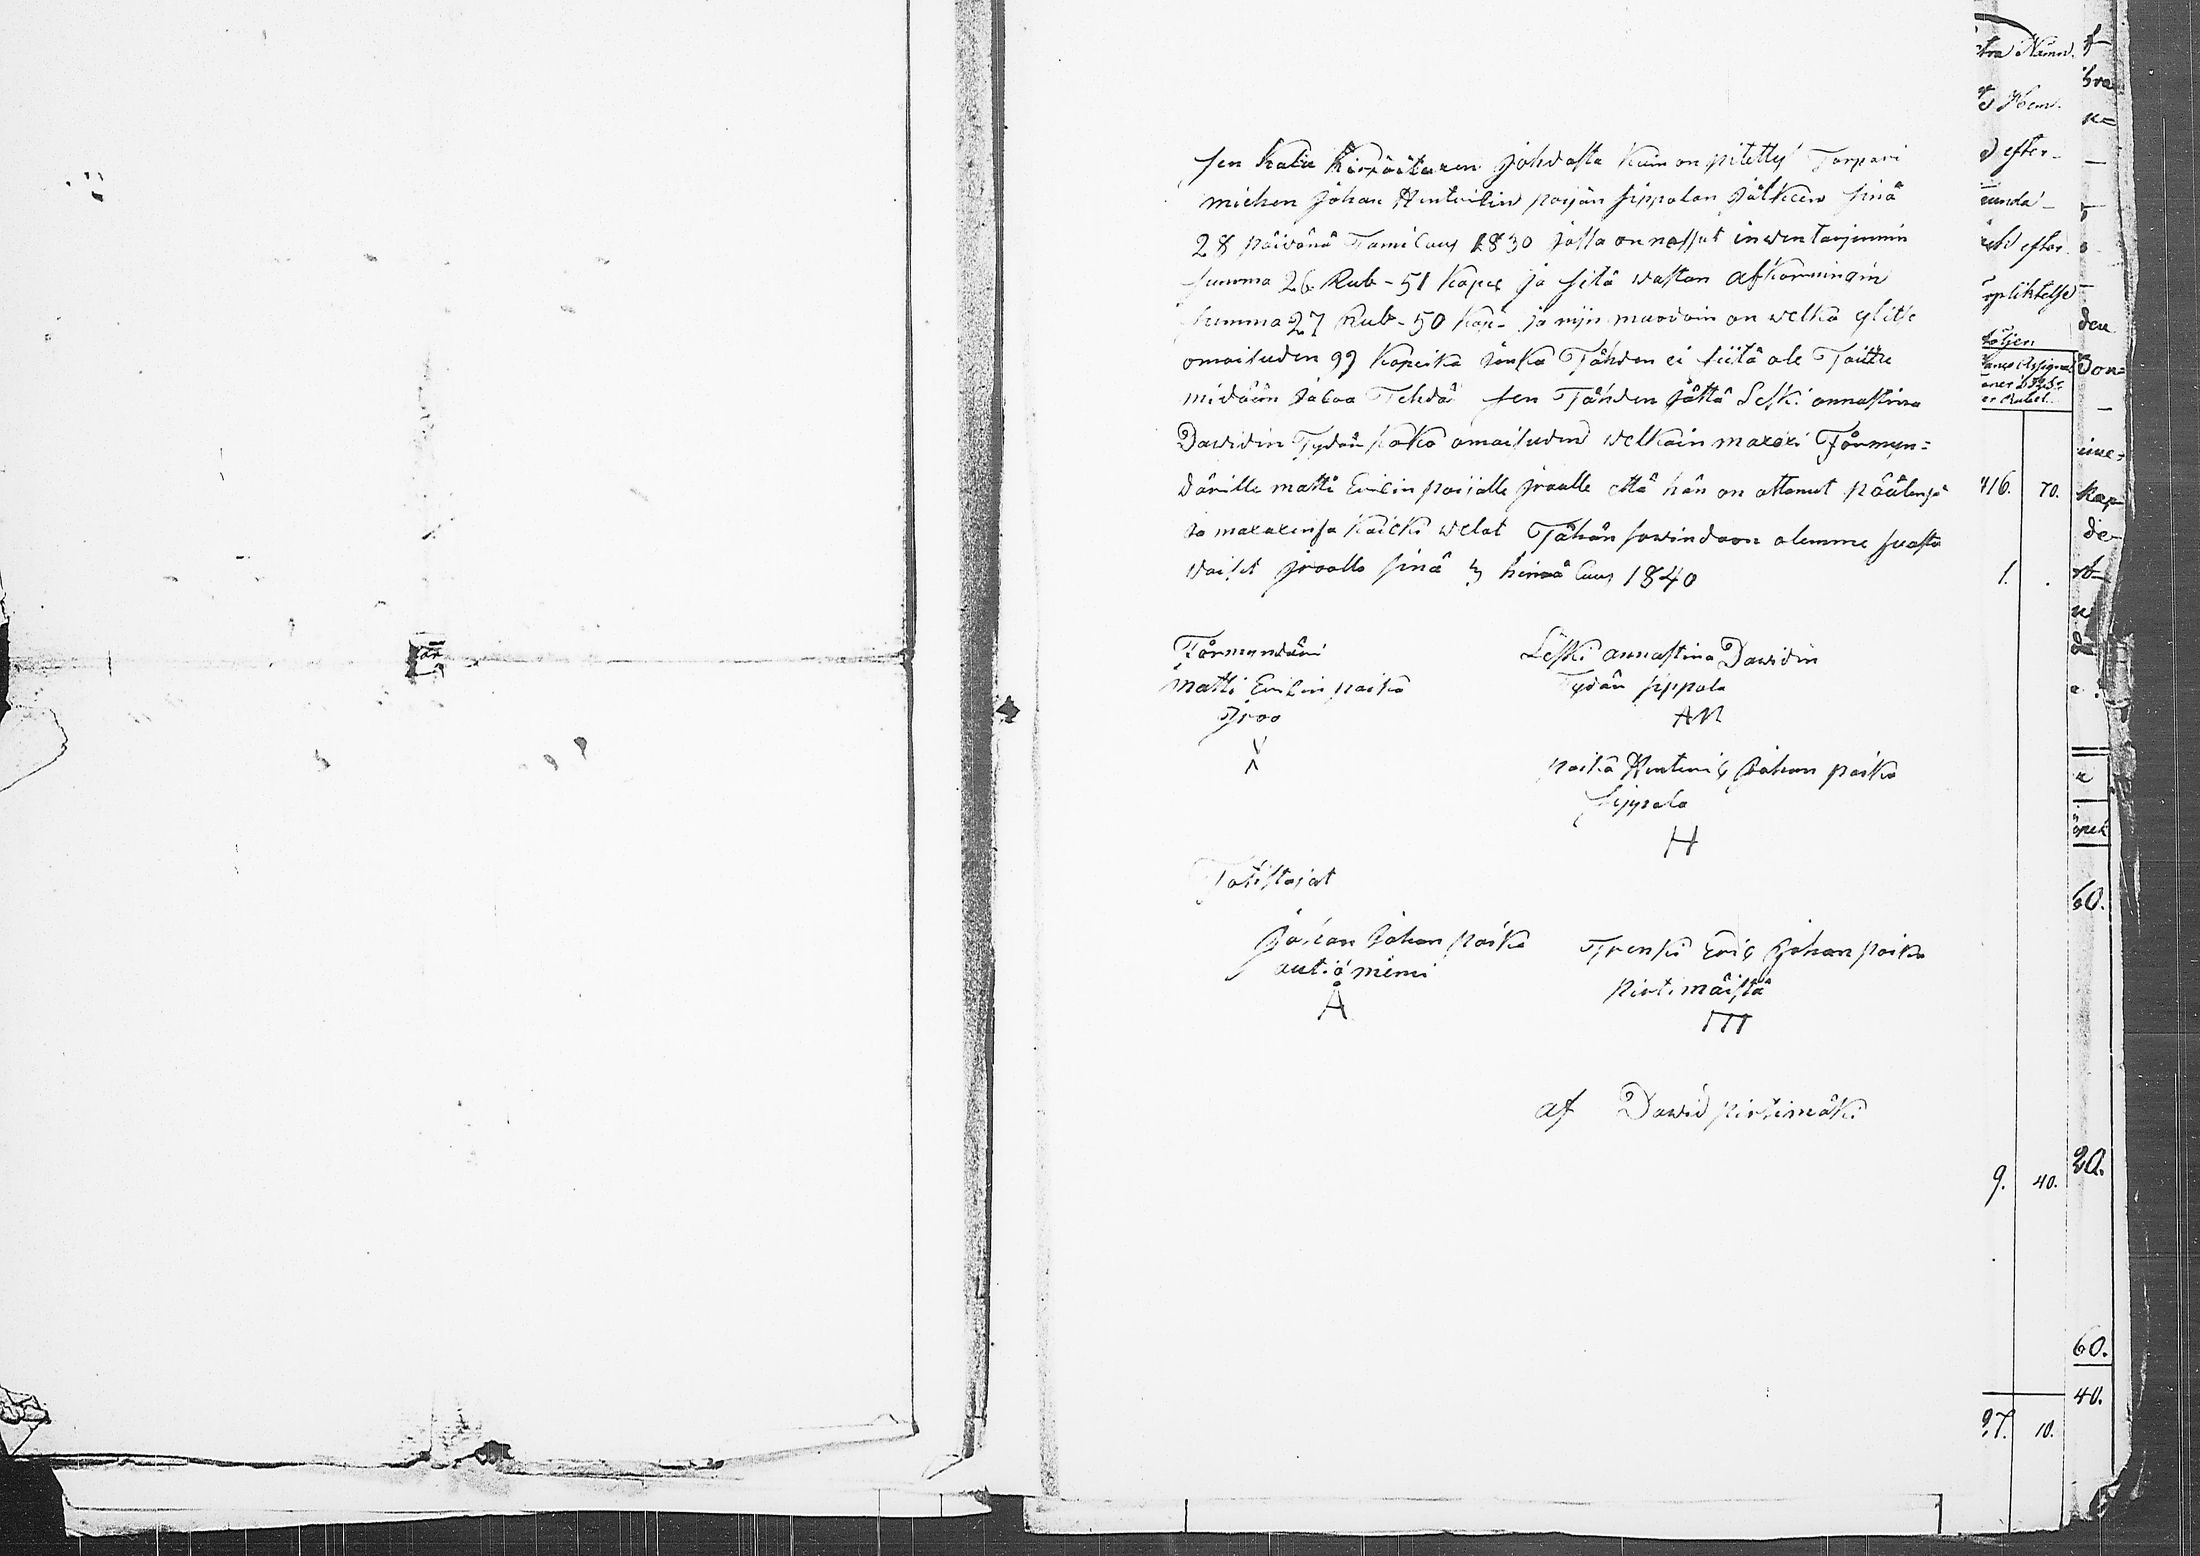 sen Kalu Kirjoituxen johdosta Kuin on pitetty Torpari
miehen Johan Hentrikin poijan sippolan Jälkeen sinä
28 päivänä Tamicuus 1830 josta on nossut inwentarjumin
summa 26 Rub - 51 Kopek ja sitä wastan afkorningin
summa 27 Rub - 50 Kop - ja nijn muodoin on welka ylitse
omaisuden 99 Kopeika jonka Tähden ei siitä ole Taittu
midään Jacoa Tehdä sen Tähden jättä Leski annastina
Dawidin Tydär Koko omaisuden welkain maxoxi Förmyn=
därille matti Erikin poijalle jraalle että hän on ottanut päälensä
ja maxaxensa Kaicki welat Tähän sowindoon olemme suosta
waiset jraalla sinä 3 heinä Cuus 1840
Förmyndäri
matti Erikin poika
jraa
X
Leski annastina Dawidin
Tydär sippola
AN
poika Hentrik Johan poika
sippola
H
Totistajat
Johan Johan poika
autioniemi
Å
Trenki Eric Johan poika
Pirtimäistä
m
af Dawid pirtimäki
tra Nämnd.
efter-
efter
följen
416. 70.
1. .
9. 40.
27. 10.
den
kap
de
60.
20.
60.
40.